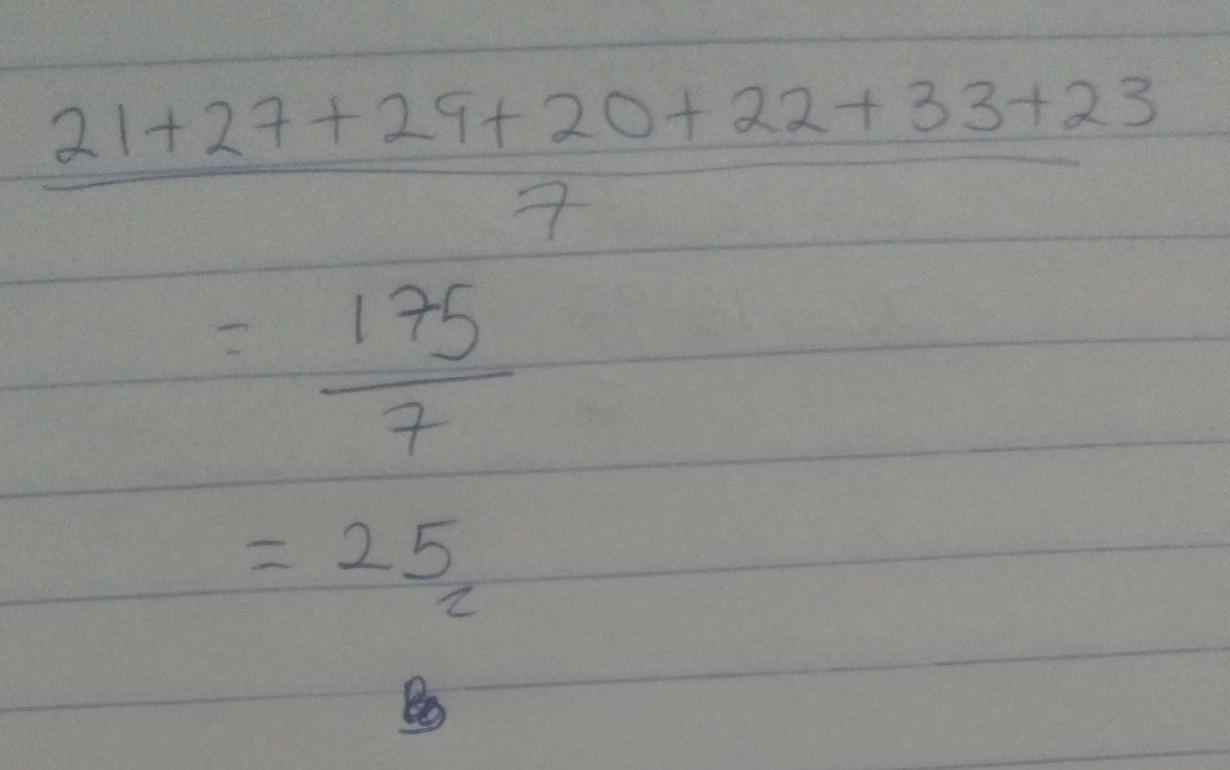 21+27+29+20+22+33+23
7
= 175
7
= 25